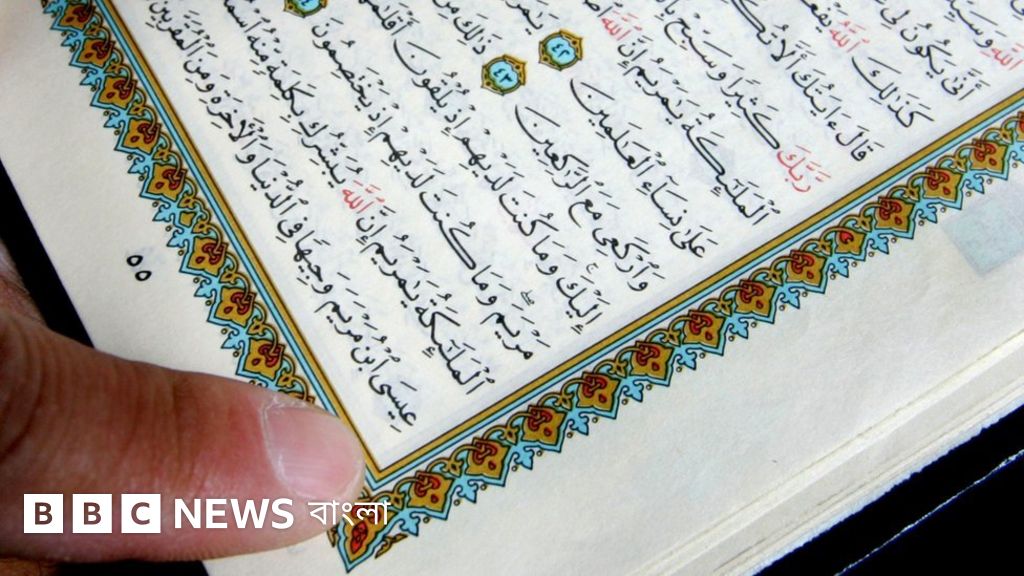 ٱللَّهِ
أَنَّىٰ يَكُونُ لِي
كَذَٰلِكَ ٱللَّهُ يَفْعَلُ
قَالَ ءَايَتُكَ أَلَّا
رَّبَّكَ كَثِيرًا وَسَبِّحْ
ٱلْمَلَٰٓئِكَةُ يَٰمَرْيَمُ إِنَّ ٱللَّهَ
عَلَىٰ نِسَآءِ ٱلْعَٰلَمِينَ ٤٢
وَٱرْكَعِى مَعَ ٱلرَّٰكِعِينَ ٤٣ ذَٰلِكَ
إِلَيْكَ وَمَا كُنتَ لَدَيْهِمْ إِذْ يُلْقُونَ
مَرْيَمَ وَمَا كُنتَ لَدَيْهِمْ إِذْ يَخْتَصِمُونَ
ٱلْمَلَٰٓئِكَةُ يَٰمَرْيَمُ إِنَّ ٱللَّهَ يُبَشِّرُكِ بِكَلِمَةٍ مِّنْهُ
عِيسَى ٱبْنُ مَرْيَمَ وَجِيهًا فِى ٱلدُّنْيَا وَٱلْءَاخِرَةِ وَمِنَ ٱلْمُقَرَّبِينَ
٥٥
BBC NEWS বাংলা